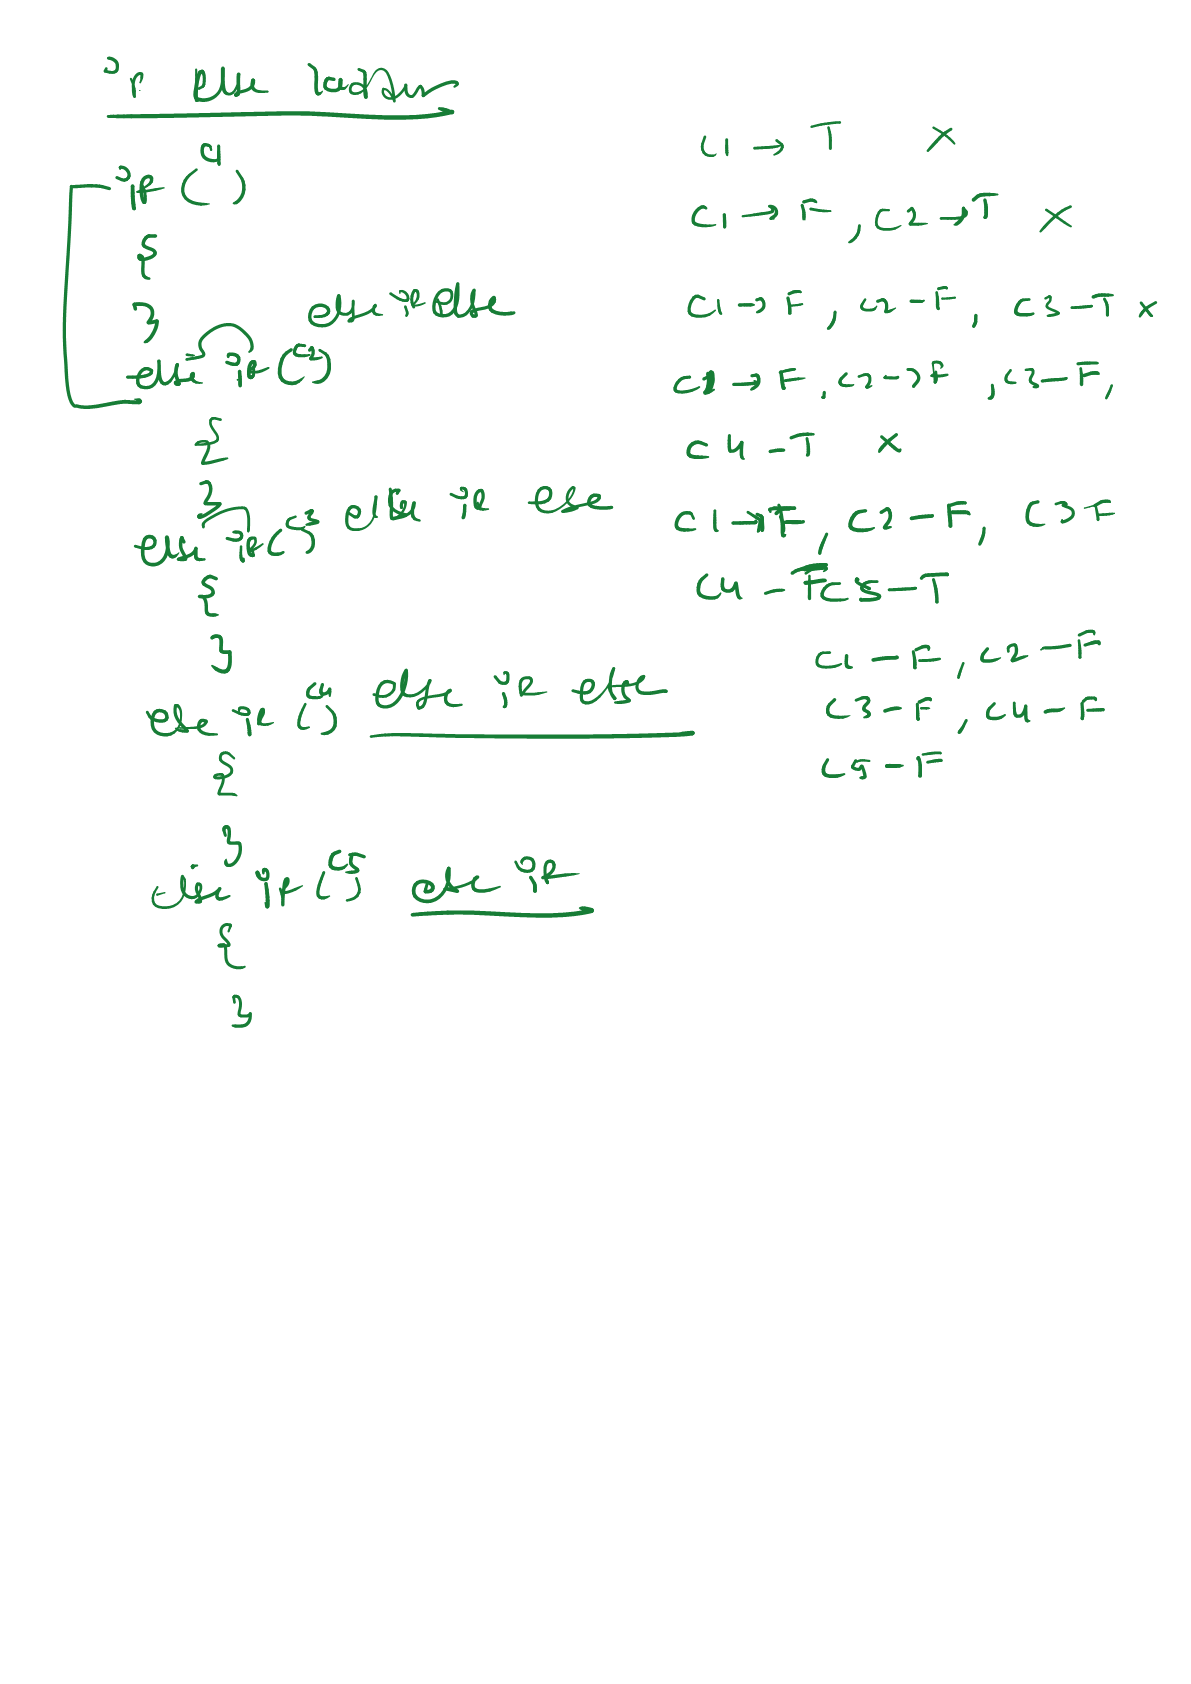 if else ladder
if (C1)
{
}
else if else
else if (C2)
{
}
else if (C3) else if else
{
}
else if (C4) else if else
{
}
else if (C5) else if
{
}
C1 → T ×
C1 → F , C2 → T ×
C1 → F , C2 - F , C3 - T ×
C1 → F , C2 → F , C3 - F ,
C4 - T ×
C1 → F , C2 - F , C3 F
C4 - F C5 - T
C1 - F , C2 - F
C3 - F , C4 - F
C5 - F